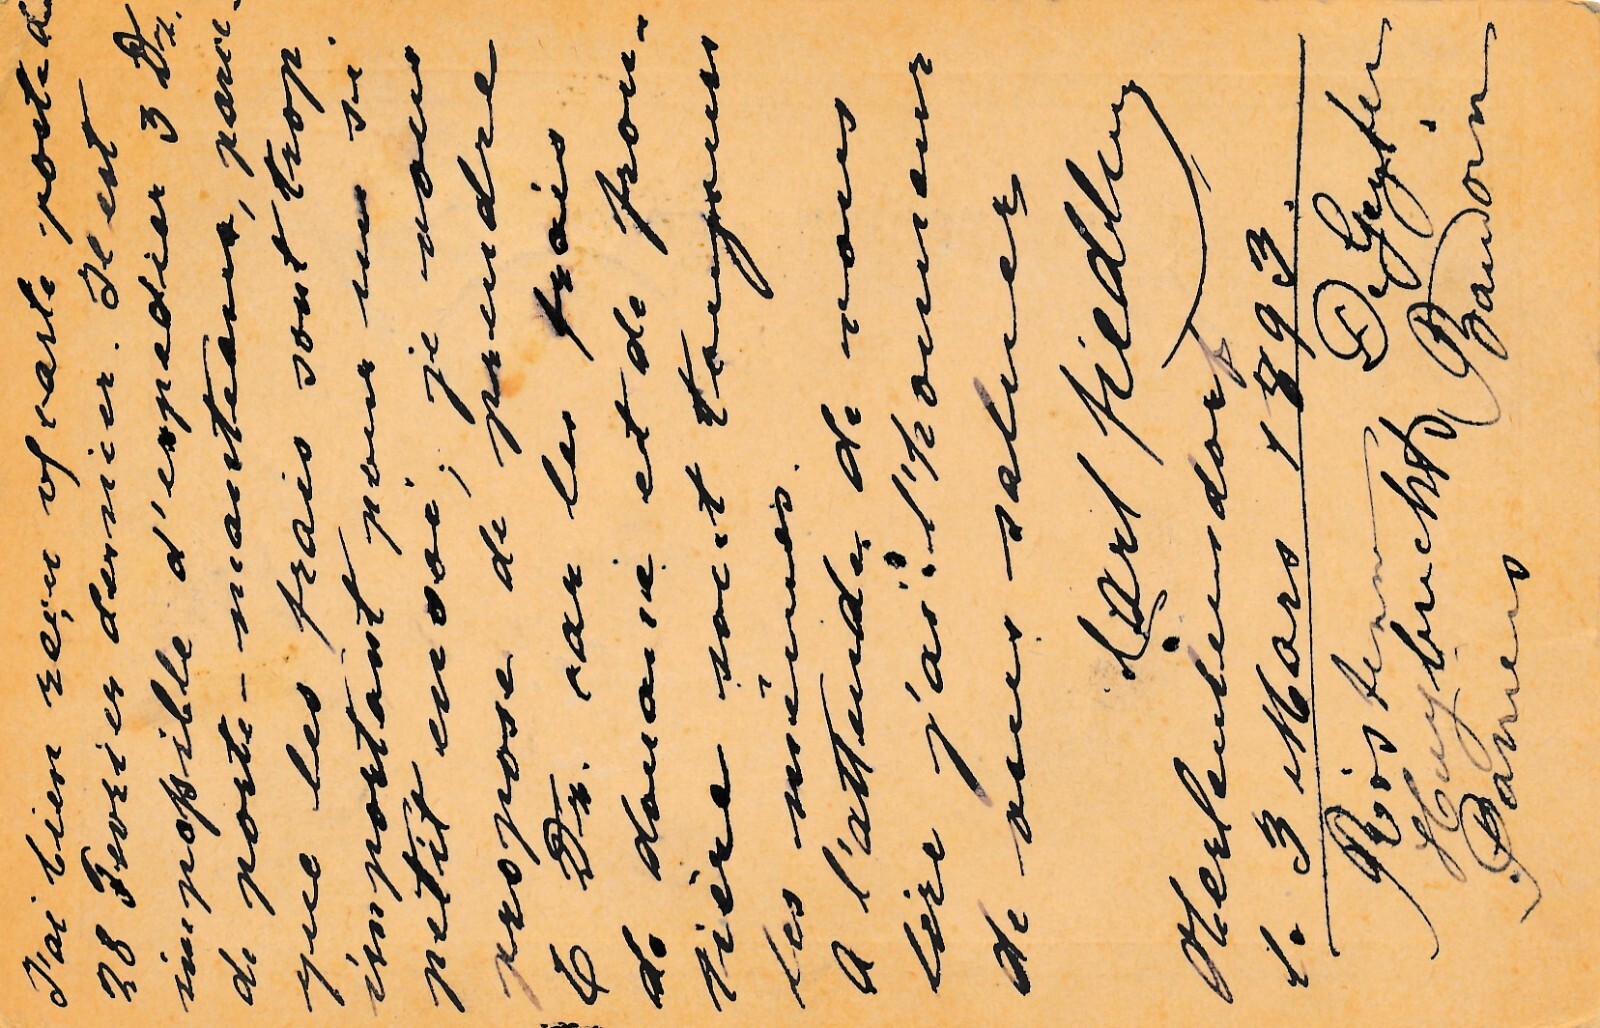 J'ai bien reçu v/ carte postale du
28 Fevrier dernier. Il est
impossible d'expedier 3 Dz.
de porte-manteaux, parce-
que les frais sont trop
important pour un si
petit envoi; je vous
propose de prendre
6 Dz. car les frais
de douane et de fron-
tière sont toujours
les mêmes.
A l'attende de vous
lire j'ai l'honneur
de vous saluer
Karl Fiedler
l. 3 Mars 1893.
Rösten De Geyter
Huybrecht Baudoin